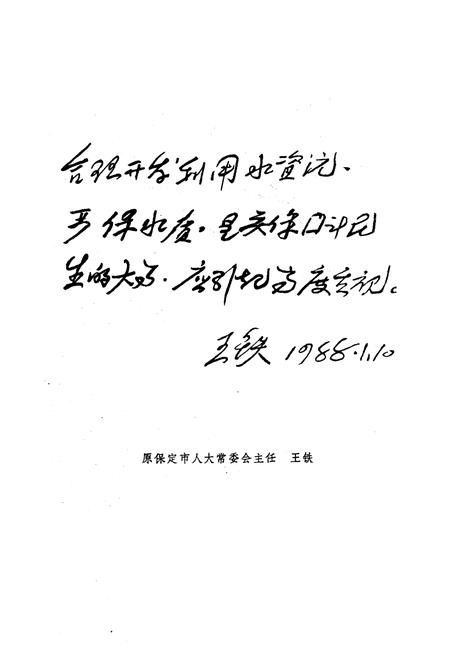 合理开发利用水资沅、
严保水质。是关保国计民
生的大事.应引起高度重视。
王铁 1988.1.10
原保定市人大常委会主任 王铁